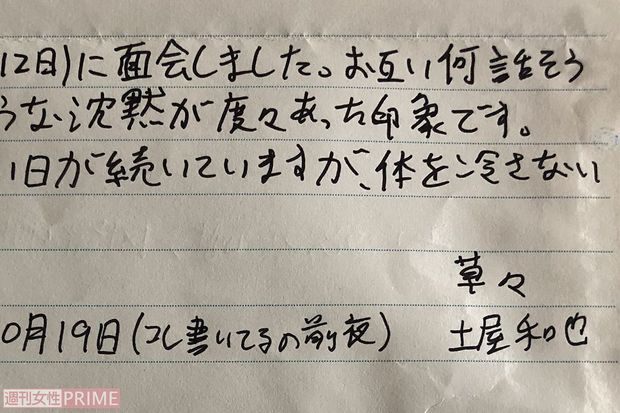 12日)に面会しました。お互い何話そう
うな沈黙が度々あった印象です。
い日が続いていますが、体を冷さない
草々
0月19日(コレ書いてるの前夜) 土屋和也
週刊女性PRIME